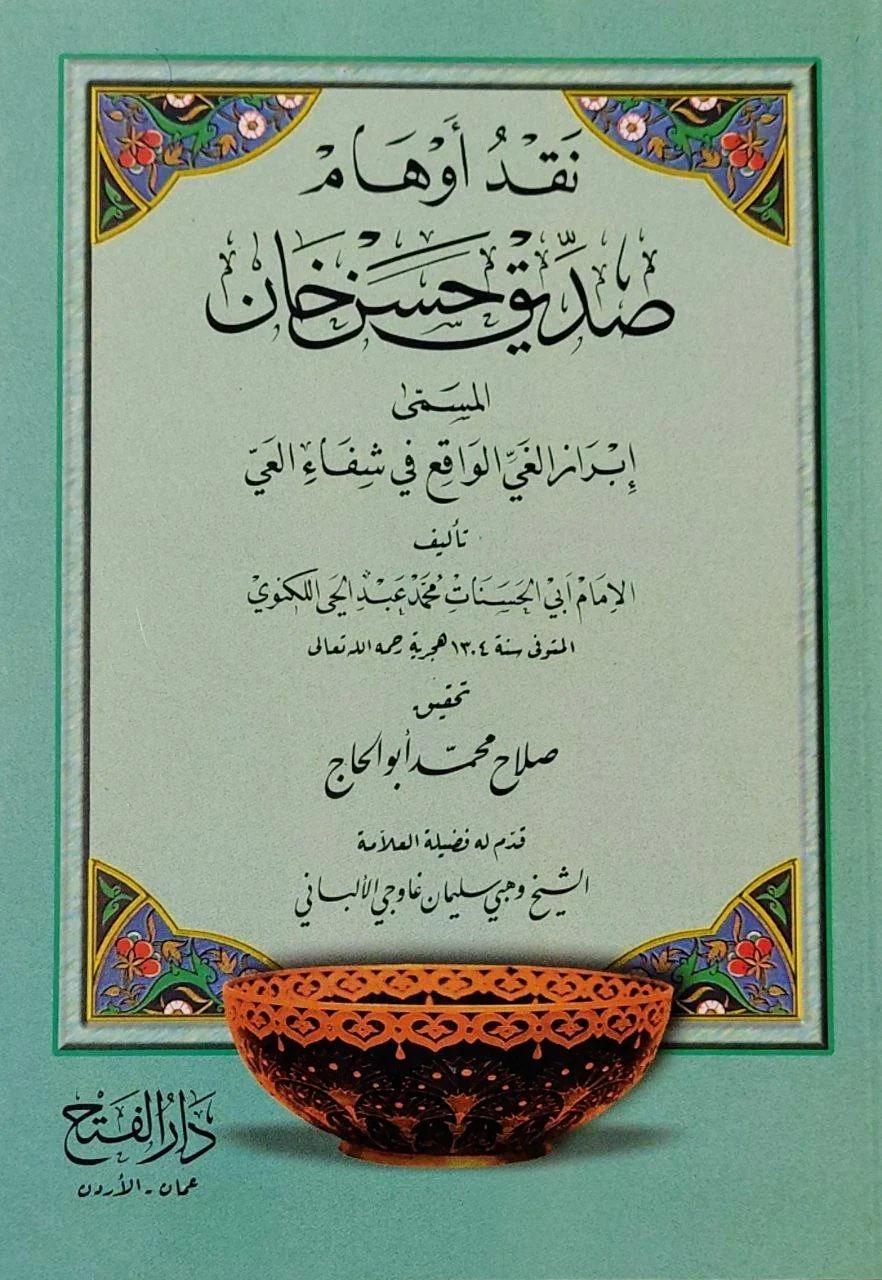 نَقْدُ أَوْهَامْ
صِدِّيق حَسَنْ خَان
المسَمّىٰ
إِبْرَاز الغَيِّ الوَاقِع فِي شِفَاءِ العَيّ
تأليف
الإمَام أَبي الحَسَنَاتْ مُحَمَّدْ عَبْدْ الحَي اللكنوي
المتوفى سنة ١٣٠٤ هجرية رحمه الله تعالى
تحقيق
صلاح محمّد أبو الحاج
قدّم له فضيلة العلاّمة
الشيخ وهبي سليمان غاوجي الألباني
دَارُ الفَتْح
عمان - الأردن